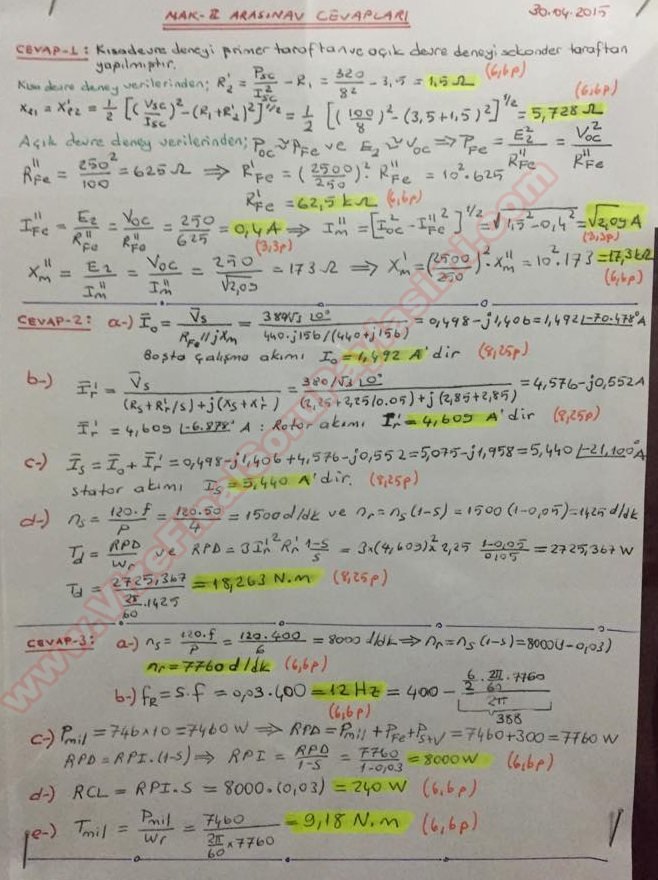 MAK-II ARASINAV CEVAPLARI 30.04.2015
CEVAP-1: Kısadevre deneyi primer taraftan ve açık devre deneyi sekonder taraftan
yapılmıştır. (6,6p)
Kısa devre deney verilerinden; R₂' = Psc/Isc² - R₁ = 320/8² - 3,5 = 1,5 Ω (6,6p)
Xℓ1 = X'ℓ2 = 1/2 [(Vsc/Isc)² - (R₁+R₂')²]^1/2 = 1/2 [(100/8)² - (3,5+1,5)²]^1/2 = 5,728 Ω
Açık devre deney verilerinden; Poc ≈ PFe ve E₂ ≈ Voc ⇒ PFe = E₂²/R''Fe = Voc²/R''Fe
R''Fe = 250²/100 = 625 Ω ⇒ R'Fe = (2500/250)². R''Fe = 10². 625
R'Fe = 62,5 kΩ (6,6p)
I''Fe = E₂/R''Fe = Voc/R''Fe = 250/625 = 0,4 A ⇒ I''m = [I²oc - I''Fe²]^1/2 = √1,5² - 0,4² = √2,09 A
(3,3p) (3,3p)
X''m = E₂/I''m = Voc/I''m = 250/√2,09 = 173 Ω ⇒ X'm = (2500/250)². X''m = 10². 173 = 17,3 kΩ
(6,6p)
CEVAP-2: a-) Ī₀ = V̄s/(RFe//jXm) = 380/√3 ∠0°/(440.j156/(440+j156)) = 0,498-j1,406 = 1,492 ∠-70.478° A
Boşta çalışma akımı I₀ = 1,492 A' dir (8,25p)
b-) Īr' = V̄s/((Rs+Rr'/s)+j(Xs+Xr')) = 380/√3 ∠0°/((2,25+2,25/0.05)+j(2,85+2,85)) = 4,576-j0,552A
Īr' = 4,609 ∠-6.878° A : Rotor akımı Ir' = 4,609 A' dir (8,25p)
c-) Īs = Ī₀ + Īr' = 0,498-j1,406+4,576-j0,552 = 5,075-j1,958 = 5,440 ∠-21,100° A
stator akımı Is = 5,440 A' dir. (8,25p)
d-) ns = 120.f/P = 120.50/4 = 1500 d/dk ve nr = ns(1-s) = 1500(1-0,05) = 1425 d/dk
Td = RPD/Wr ve RPD = 3Ir'² Rr' (1-s)/s = 3×(4,609)² × 2,25 (1-0.05)/0.05 = 2725,367 W
Td = 2725,367/(2π/60 .1425) = 18,263 N.m (8,25p)
CEVAP-3: a-) ns = 120.f/P = 120.400/6 = 8000 d/dk ⇒ nr = ns(1-s) = 8000(1-0,03)
nr = 7760 d/dk (6,6p)
b-) fR = s.f = 0,03.400 = 12 Hz = 400 - (6/2 . 2π/60 .7760)/2π
(6,6p) 388
c-) Pmil = 746×10 = 7460 W ⇒ RPD = Pmil + PFe + Ps+v = 7460+300 = 7760 W
RPD = RPI.(1-s) ⇒ RPI = RPD/(1-s) = 7760/(1-0,03) = 8000 W (6,6p)
d-) RCL = RPI.s = 8000.(0,03) = 240 W (6,6p)
e-) Tmil = Pmil/Wr = 7460/(2π/60 × 7760) = 9,18 N.m (6,6p)
www.VizeFinalSoruPaylasimi.com